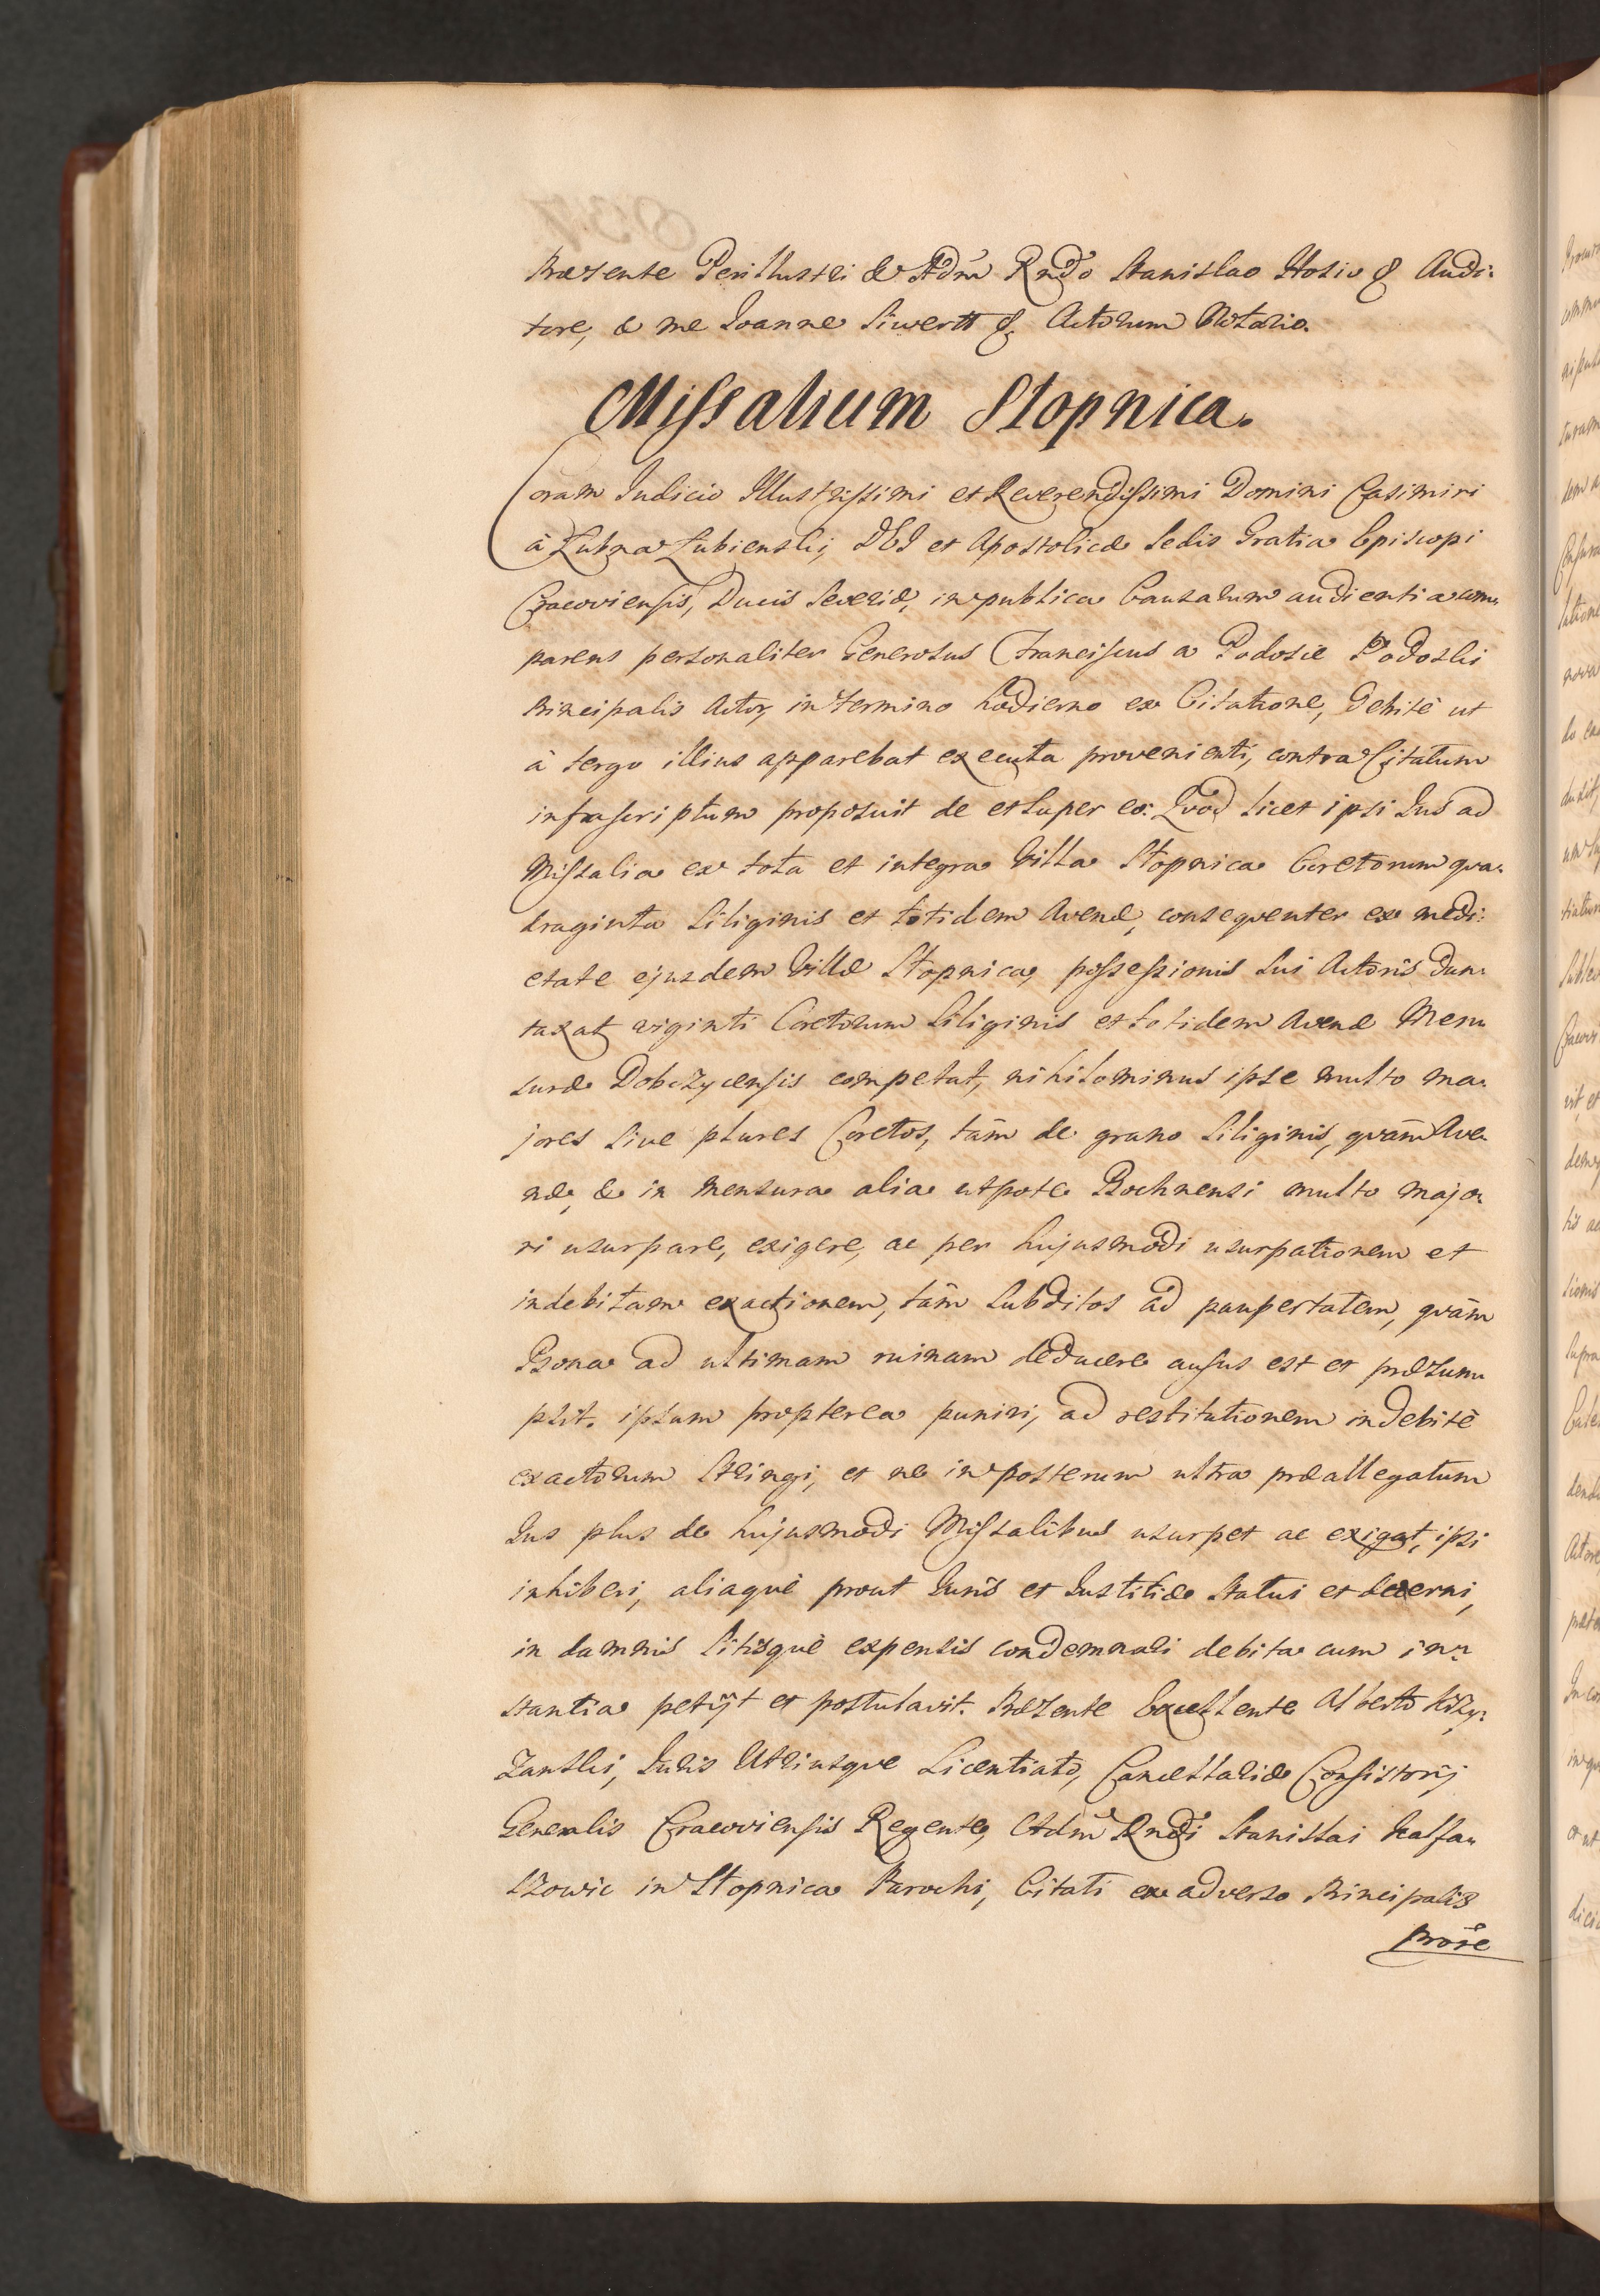 Præsente Perillustri & Adm̃ Rndo Stanislao Hosio & Audi-
tore, & me Joanne Siwertt &. Actorum Notario.
Missalium Stopnica.
Coram Judicio Illustrissimi et Reverendissimi Domini Casimiri
à Łubna Łubienski, DEI et Apostolicæ Sedis Gratia Episcopi
Cracoviensis, Ducis Severiæ, in publica Causarum audientia com-
parens personaliter Generosus Franciscus a Podosie Podoski
Principalis Actor, in termino hodierno ex Citatione, debitè ut
à tergo illius apparebat executa provenienti, contra Citatum
infrascriptum proposuit de et super eo: Quod licet ipsi Jus ad
Missalia ex tota et integra Villa Stopnica Coretorum qua-
draginta Siliginis et totidem Avenæ, consequenter ex medi-
etate ejusdem Villæ Stopnica, possessionis sui Actoris dun-
taxat viginti Coretorum Siliginis et totidem Avenæ Men-
suræ Dobczycensis competat, nihilominus ipse multo ma-
jores sive plures Coretos, tàm de grano Siliginis, quàm Ave-
næ, & in mensura alia utpote Bochnensi multo majo-
ri usurpare, exigere, ac per hujusmodi usurpationem et
indebitam exactionem, tàm subditos ad paupertatem, quàm
Bona ad ultimam ruinam deducere ausus est et præsum-
psit. ipsum propterea puniri, ad restitutionem indebitè
exactorum stringi, et ne in posterum ultra præallegatum
Jus plus de hujusmodi Missalibus usurpet ac exigat, ipsi
inhiberi, aliaquè prout Juris et Justitiæ statui et decerni,
in damnis litisquè expensis condemnari debita cum in-
stantia petijt et postulavit. Præsente Excellente Alberto
Juris Utriusque Licentiato, Cancellariæ Consistorij
Generalis Cracoviensis Regente, Adm̃ Rndi Stanislai
in Stopnica Parochi, Citati ex adverso Principalis
Prore